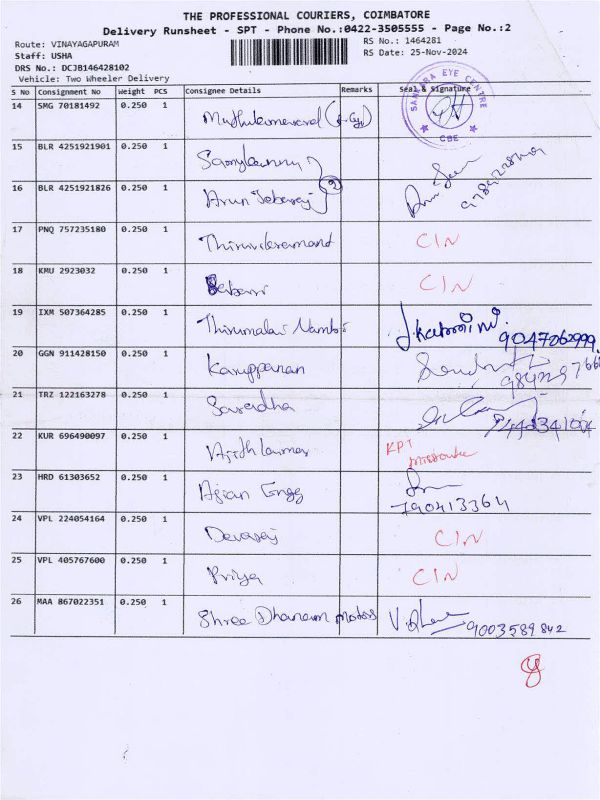 THE PROFESSIONAL COURIERS, COIMBATORE
Delivery Runsheet - SPT - Phone No.:0422-3505555 - Page No.:2
Route: VINAYAGAPURAM RS No.: 1464281
Staff: USHA RS Date: 25-Nov-2024
DRS No.: DCJB146428102
Vehicle: Two Wheeler Delivery
S No Consignment No Weight PCS Consignee Details Remarks Seal & Signature
SANKARA EYE CENTRE
CBE
14 SMG 70181492 0.250 1
15 BLR 4251921901 0.250 1
16 BLR 4251921826 0.250 1 Arun Jebaraj 2
17 PNQ 757235180 0.250 1 CIN
18 KMU 2923032 0.250 1 CIN
19 IXM 507364285 0.250 1 Thirumalai Nambi 9047062999
20 GGN 911428150 0.250 1 Karuppanan
21 TRZ 122163278 0.250 1 Saradha
22 KUR 696490097 0.250 1 Ajithkumar KPT
23 HRD 61303652 0.250 1 Agian Engg 790413364
24 VPL 224054164 0.250 1 Devaraj CIN
25 VPL 405767600 0.250 1 Priya CIN
26 MAA 867022351 0.250 1 Shree Dhanam Motors 9003589842